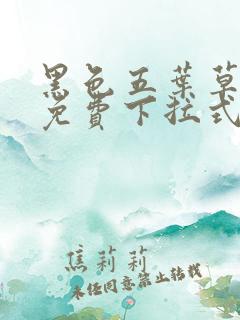 黑色五葉草
免費下拉式
焦莉莉
未经同意禁止转载